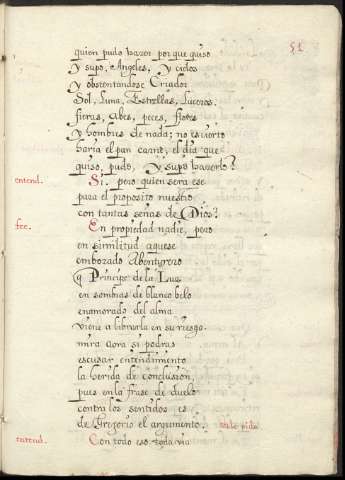 51
quien pudo hazer porque quiso
y supo, Angeles, y cielos
y obstentandose Criador
Sol, Luna, Estrellas, Luceros,
fieras, abes, peces, flores
y hombre de nada; no es cierto
haria el pan carne, el dia que
quiso, pudo, y supo hazerlo?
entend. Si. pero quien sera ese
para el proposito nuestro
con tantas señas de Dios?
fee. En propiedad nadie, pero
en similitud aquese
embozado Abenturero
q Principe de la Luz
en sombras de blanco belo
enamorado del alma
viene a librarla en su riesgo.
mira aora si podras
escusar entendimiento
la herida de conclusion,
pues en la frase de duelo
contra los sentidos es
de Gregorio el argumento.
entend. Con todo eso toda via